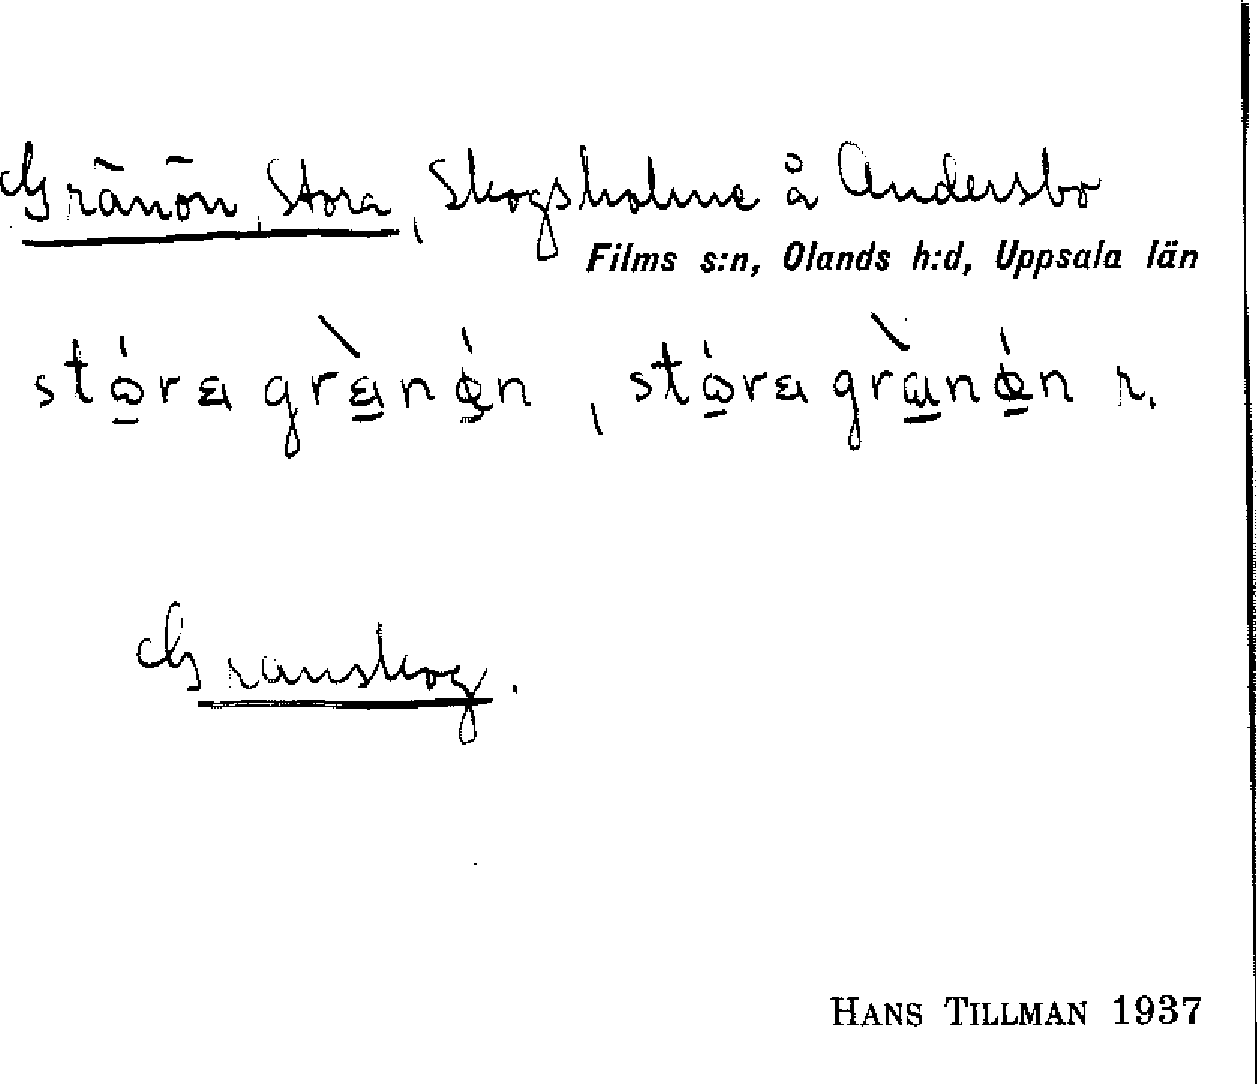 Gränön, Stora, Skogsholme å Andersbo
Films s:n, Olands h:d, Uppsala län
stó̱ra grànǿn, stó̱ra grànǿn r.
Granskog.
HANS TILLMAN 1937